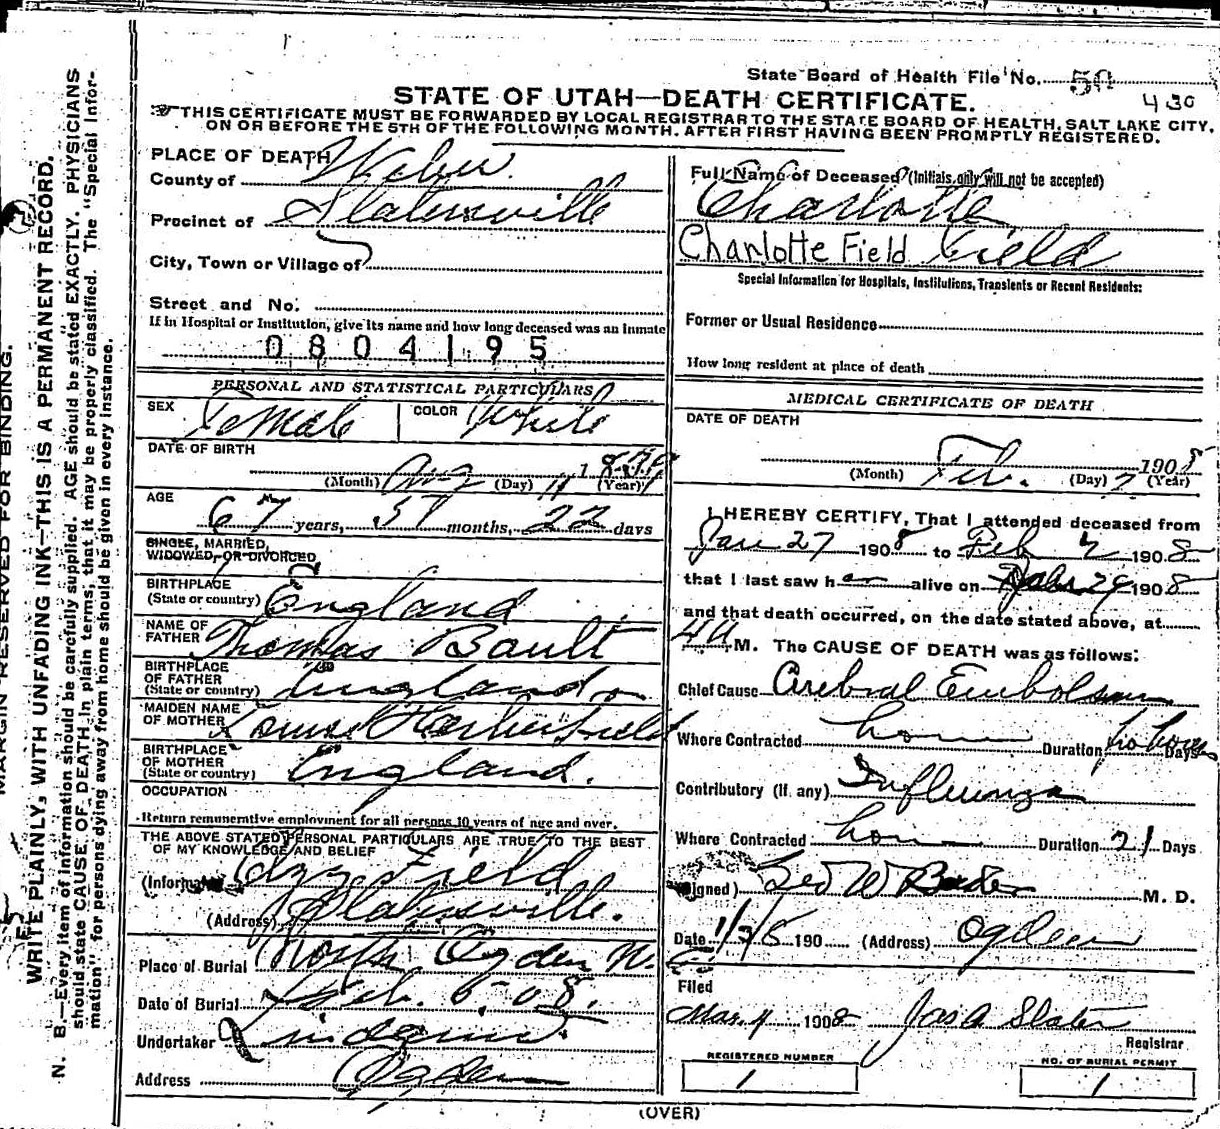 State Board of Health File No. 50
430
STATE OF UTAH—DEATH CERTIFICATE.
THIS CERTIFICATE MUST BE FORWARDED BY LOCAL REGISTRAR TO THE STATE BOARD OF HEALTH, SALT LAKE CITY,
ON OR BEFORE THE 5TH OF THE FOLLOWING MONTH. AFTER FIRST HAVING BEEN PROMPTLY REGISTERED.
PLACE OF DEATH
County of Weber.
Precinct of Slatersville
City, Town or Village of
Street and No.
If in Hospital or Institution, give its name and how long deceased was an inmate
0804195
PERSONAL AND STATISTICAL PARTICULARS
SEX Female COLOR White
DATE OF BIRTH
(Month) Aug (Day) 11 (Year)
AGE
67 years, 5 months, 22 days
SINGLE, MARRIED,
WIDOWED, OR DIVORCED
BIRTHPLACE
(State or country) England
NAME OF
FATHER Thomas Bault
BIRTHPLACE
OF FATHER
(State or country) England
MAIDEN NAME
OF MOTHER Field
BIRTHPLACE
OF MOTHER
(State or country) England.
OCCUPATION
Return remunerative employment for all persons 10 years of age and over.
THE ABOVE STATED PERSONAL PARTICULARS ARE TRUE TO THE BEST
OF MY KNOWLEDGE AND BELIEF
(Informant) Field
(Address) Slatersville.
Place of Burial North Ogden
Date of Burial Feb. 5. 08.
Undertaker
Address Ogden
Full Name of Deceased (Initials only will not be accepted)
Charlotte
Charlotte Field Field
Special Information for Hospitals, Institutions, Transients or Recent Residents:
Former or Usual Residence
How long resident at place of death
MEDICAL CERTIFICATE OF DEATH
DATE OF DEATH
(Month) Feb. (Day) 2 1908 (Year)
I HEREBY CERTIFY, That I attended deceased from
Jan 27 1908 to Feb 2 1908
that I last saw her alive on 29 1908
and that death occurred, on the date stated above, at
4 M. The CAUSE OF DEATH was as follows:
Chief Cause Cerebral Embolism
Where Contracted home Duration hours Days
Contributory (if any) Influenza
Where Contracted home Duration 21 Days
(Signed) Geo W Baker M. D.
Date 190 (Address) Ogden
Filed
Mar. 4 1908 Jas A Slater
Registrar
REGISTERED NUMBER
1
NO. OF BURIAL PERMIT
1
(OVER)
MARGIN RESERVED FOR BINDING.
WRITE PLAINLY, WITH UNFADING INK—THIS IS A PERMANENT RECORD.
N. B.—Every item of information should be carefully supplied. AGE should be stated EXACTLY. PHYSICIANS
should state CAUSE OF DEATH in plain terms, that it may be properly classified. The "Special Infor-
mation" for persons dying away from home should be given in every instance.